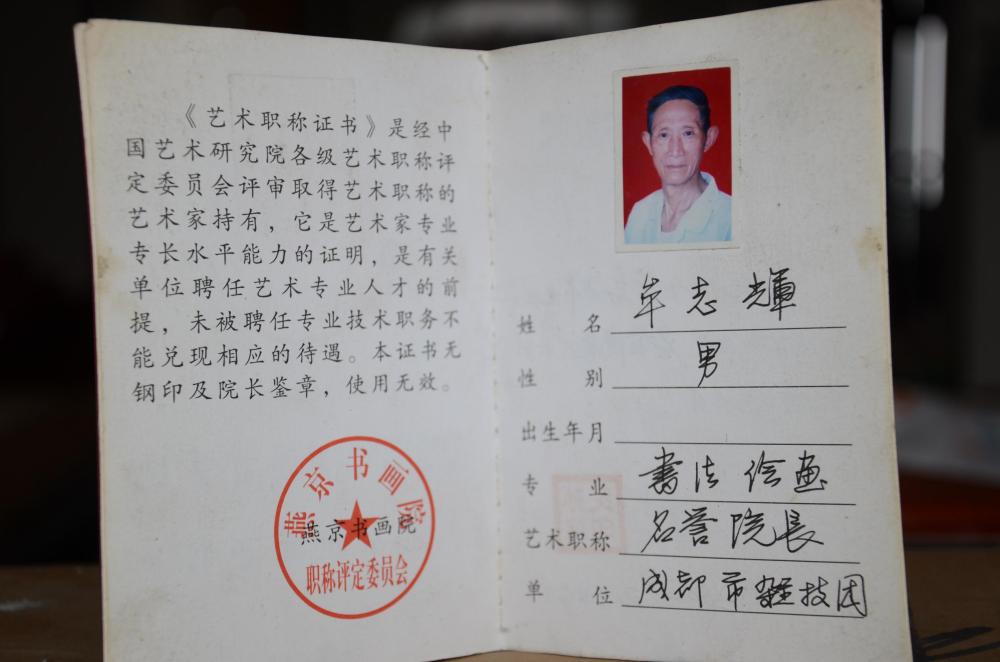 《艺术职称证书》是经中
国艺术研究院各级艺术职称评
定委员会评审取得艺术职称的
艺术家持有，它是艺术家专业
专长水平能力的证明，是有关
单位聘任艺术专业人才的前
提，未被聘任专业技术职务不
能兑现相应的待遇。本证书无
钢印及院长鉴章，使用无效。
燕京书画院
燕京书画院
职称评定委员会
姓 名 牟志輝
性 别 男
出生年月
专 业 書法绘画
艺术职称 名誉院長
单 位 成都市雜技团